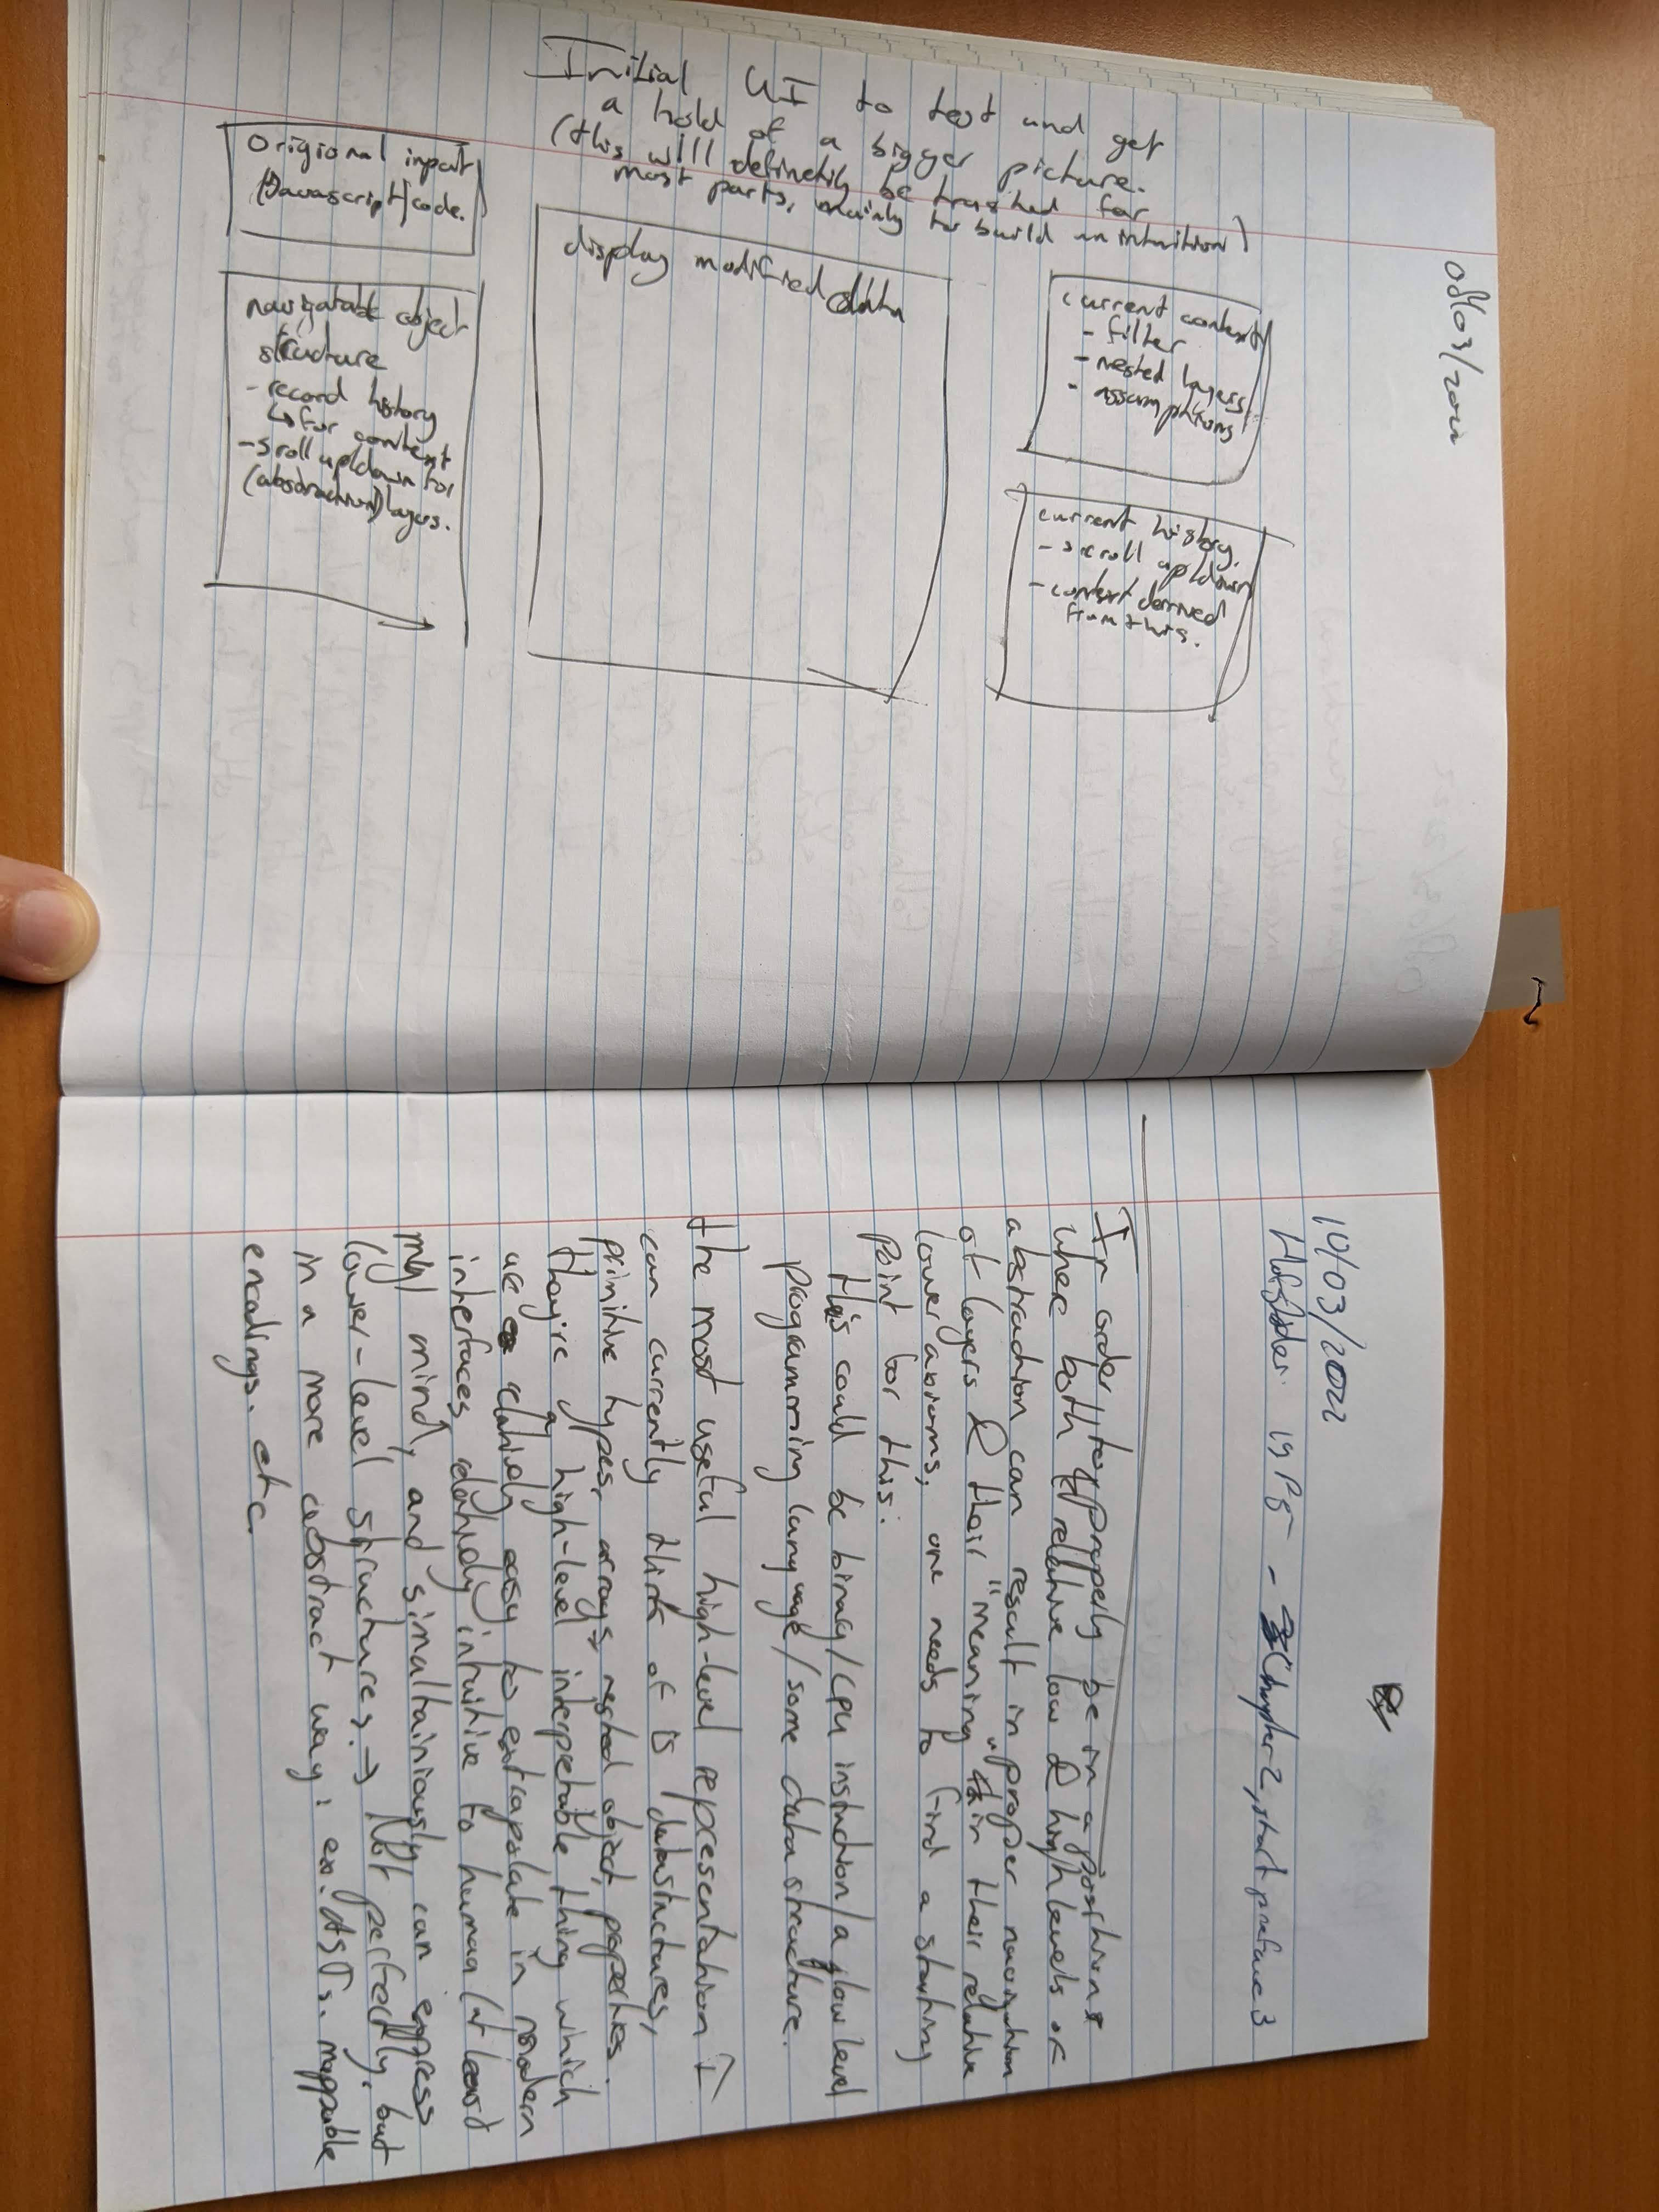 Initial UI to test and get
a hold of a bigger picture.
(this will definetily be trashed for
most parts, mainly to build an intuition)
Origional input
(Javascript) code.
navigatable object
structure
- record history
↳ for context
- scroll up/down for
(abstraction) layers.
display modified data
current context
- filter
- nested layers
- assumptions
current history.
- scroll up/down
- context derived
from this.
10/03/2022
19 Pg - Chapter 2, start preface 3
In order to properly be in a position
where both relative low & high levels of
abstraction can result in proper navigation
of layers & their "meaning" in their relative
lower axioms, one needs to find a starting
point for this.
this could be binary/cpu instruction/a low level
programming language/some data structure.
the most useful high-level representation I
can currently think of is datastructures,
primitive types, arrays, nested object, properties.
they're a high-level interpetable thing which
are relatively easy to extrapolate in modern
interfaces, intuitive to human (at least
my) mind, and simaltainiously can express
lower-level structures. → Not perfectly, but
in a more abstract way: ex. ASTs. mappable
encodings. etc.